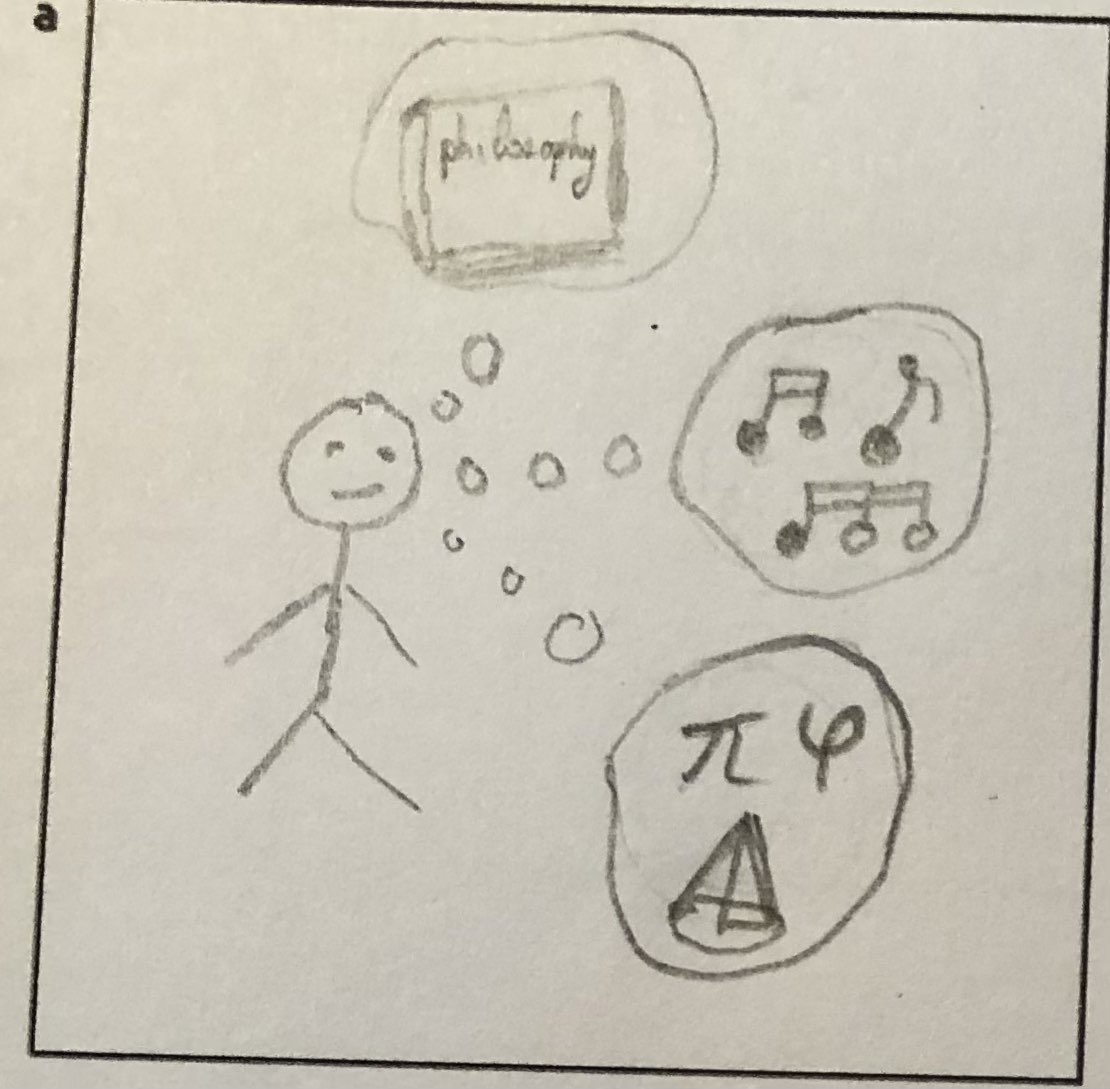 a
philosophy
π φ